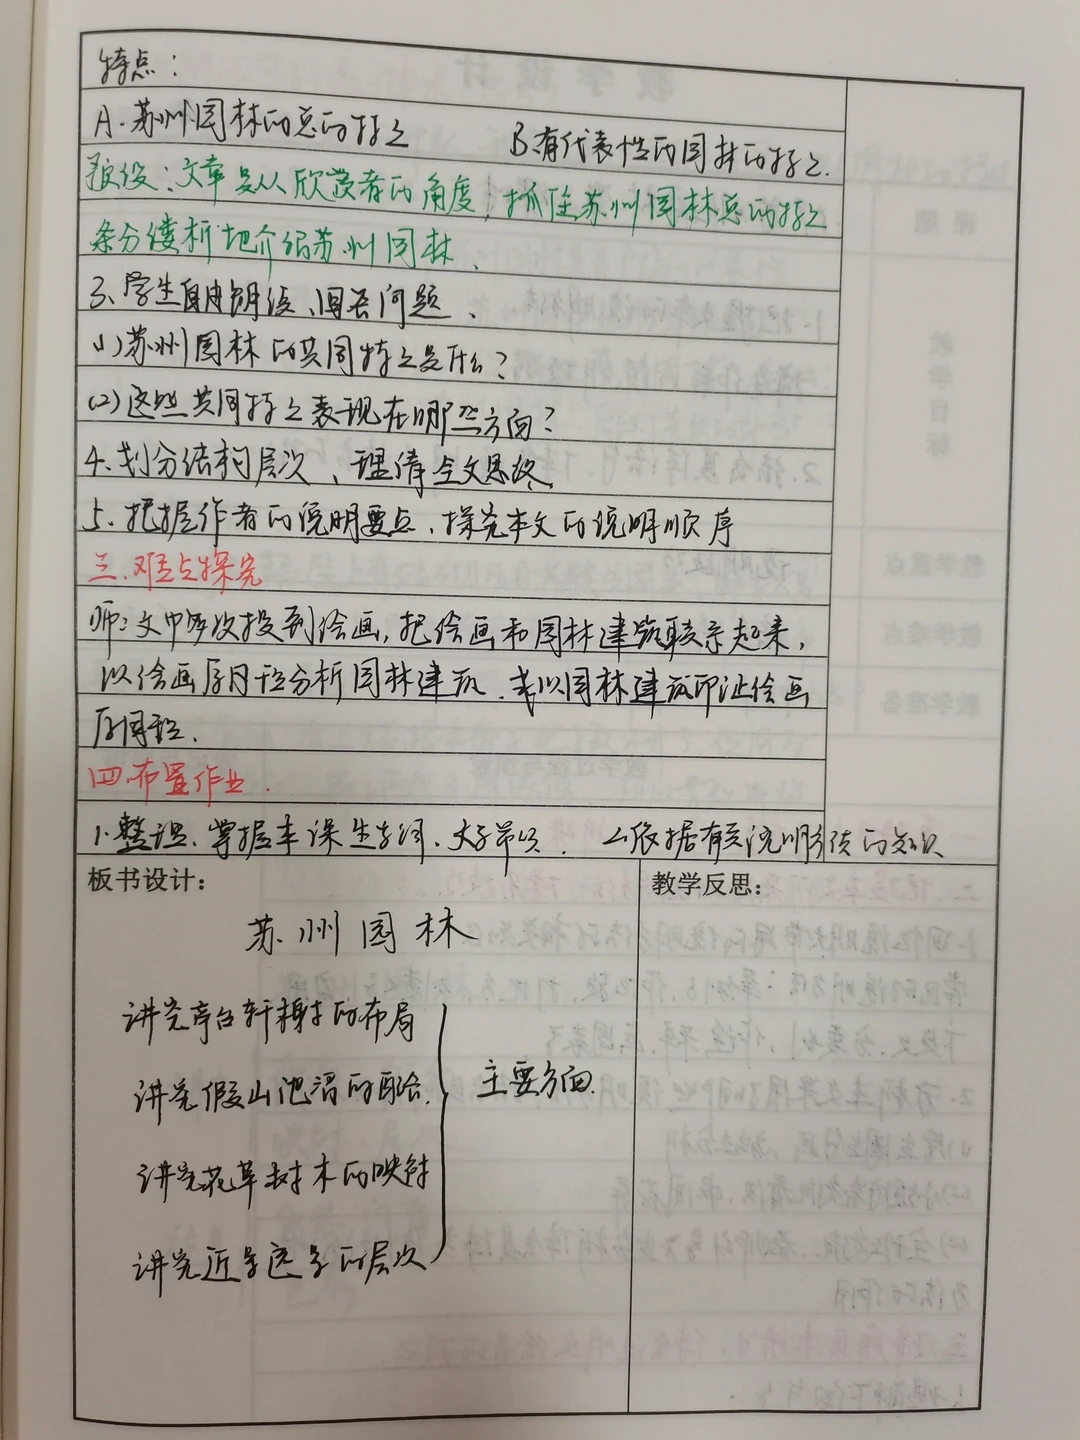 特点：
A.苏州园林的总的特点
B.有代表性的园林的特点.
预设：文章是从欣赏者的角度，抓住苏州园林总的特点
条分缕析地介绍苏州园林、
3、学生自由朗读、回答问题、
(1)苏州园林的共同特点是什么？
(2)这些共同特点表现在哪些方面？
4.划分结构层次、理清全文思路
5、把握作者的说明要点、探究本文的说明顺序
三.难点探究
师：文中多次提到绘画，把绘画和园林建筑联系起来，
以绘画原理分析园林建筑、或以园林建筑印证绘画
原理.
四.布置作业.
1.整理、掌握本课生字词、文学常识. 2.依据有关说明方法的知识
板书设计：
苏州园林
讲究亭台轩榭的布局
讲究假山池沼的配合.
讲究花草树木的映衬
讲究近景远景的层次
主要方面.
教学反思：